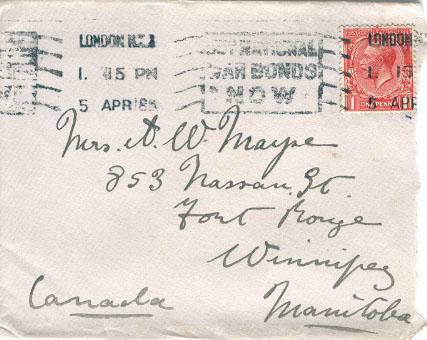 LONDON N.W.1
1. 15 PM
5 APR 18
BUY NATIONAL
WAR BONDS
NOW
LONDON
1. 15
5 APR
ONE PENNY
Mrs. A. W. Mayse
853 Nassau St.
Fort Rouge
Winnipeg
Canada
Manitoba